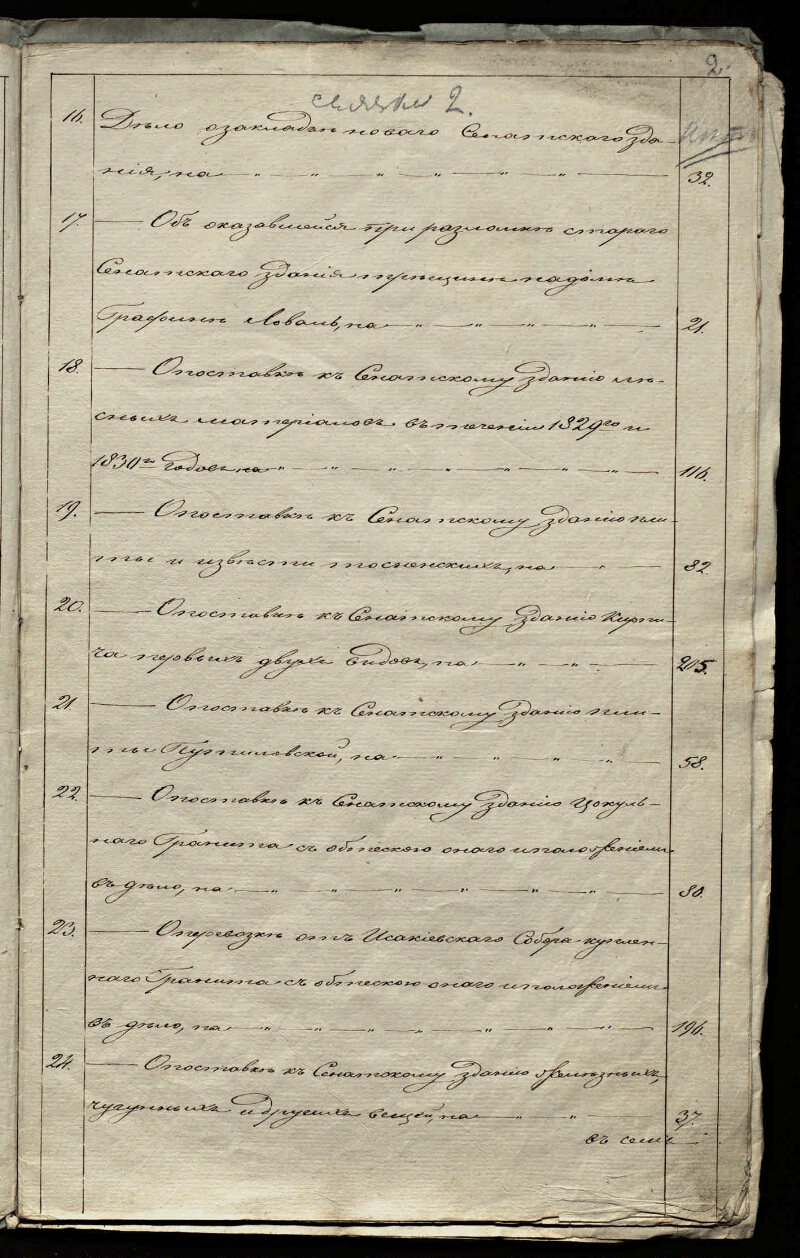 2
связки 2.
16. Дѣло о закладкѣ новаго Сенатскаго зда-
нія, на — " — " — " — " — " — 32.
17. — Объ оказавшейся при разломкѣ стараго
Сенатскаго зданія трещинѣ на домѣ
Графини Лаваль, на — " — " — " — " — 21.
18. — О поставкѣ къ Сенатскому зданію лѣ-
сныхъ матеріаловъ въ теченіи 1829го и
1830го годовъ, на — " — " — " — " — " — " — 116.
19. — О поставкѣ къ Сенатскому зданію пли-
ты и извѣсти тосненскихъ, на — " — 82.
20. — О поставкѣ къ Сенатскому зданію Кирпи-
ча первыхъ двухъ видовъ, на — " — " — 205.
21. — О поставкѣ къ Сенатскому зданію пли-
ты Путиловской, на — " — " — " — " — 58.
22. — О поставкѣ къ Сенатскому зданію Цоколь-
наго Гранита съ обтескою онаго и положеніемъ
въ дѣло, на — " — " — " — " — " — " — 80.
23. — О перевозкѣ отъ Исакіевскаго Собора куплен-
наго Гранита съ обтескою онаго и положеніемъ
въ дѣло, на — " — " — " — " — " — " — 196.
24. — О поставкѣ къ Сенатскому зданію желѣзныхъ,
чугунныхъ и другихъ вещей, на — " — " — 37.
въ семъ